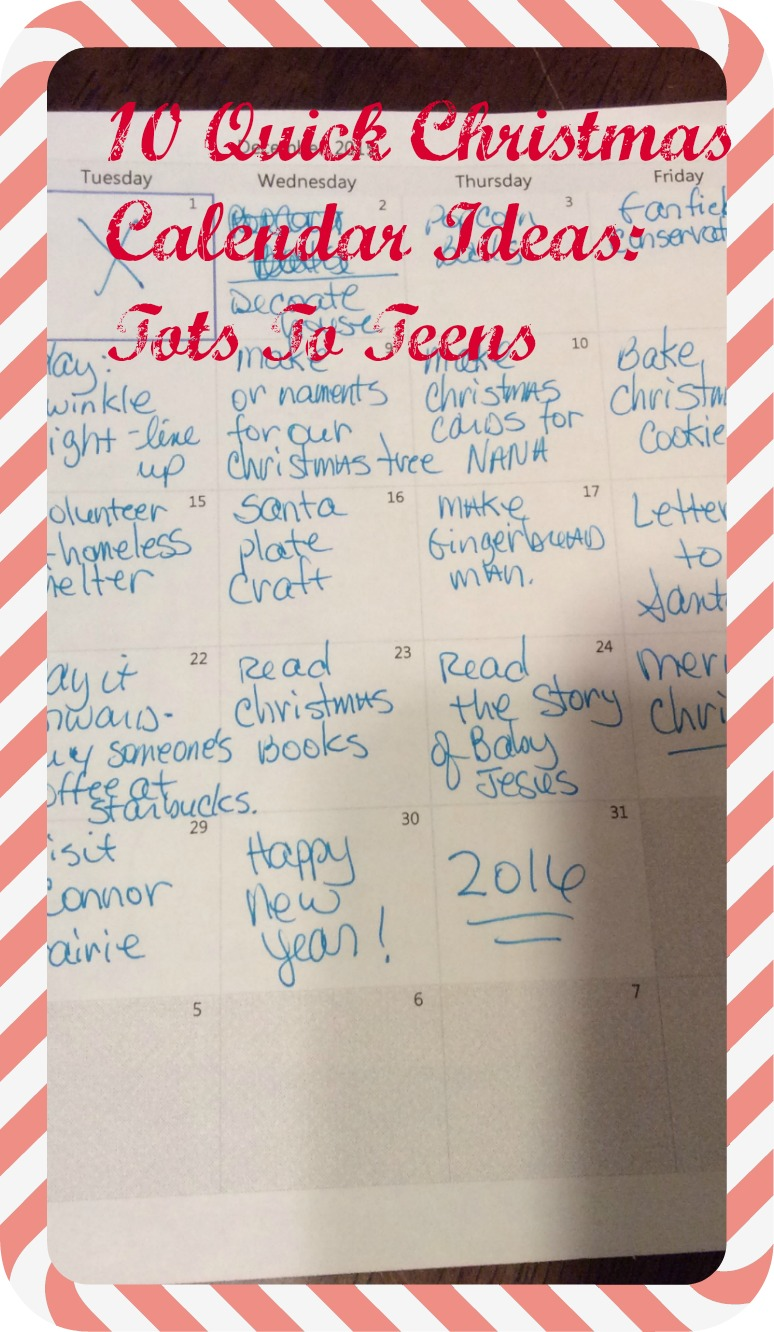 10 Quick Christmas
Calendar Ideas:
Tots To Teens
Tuesday
Wednesday
Thursday
Friday
1
2
Decorate
house
3
Popcorn
Balls
Fanfick
onservat
ay:
winkle
ight-line
up
9
make
ornaments
for our
Christmas tree
10
make
Christmas
cards for
NANA
Bake
Christm
Cookie
15
olunteer
-homeless
helter
16
Santa
plate
craft
17
make
Gingerbread
man.
Letter
to
Sant
22
ay it
nward-
uy someone's
offee at
starbucks.
23
Read
Christmas
Books
24
Read
the Story
of Baby
Jesus
merr
Chri
29
isit
Connor
rairie
30
Happy
New
year!
31
2016
5
6
7